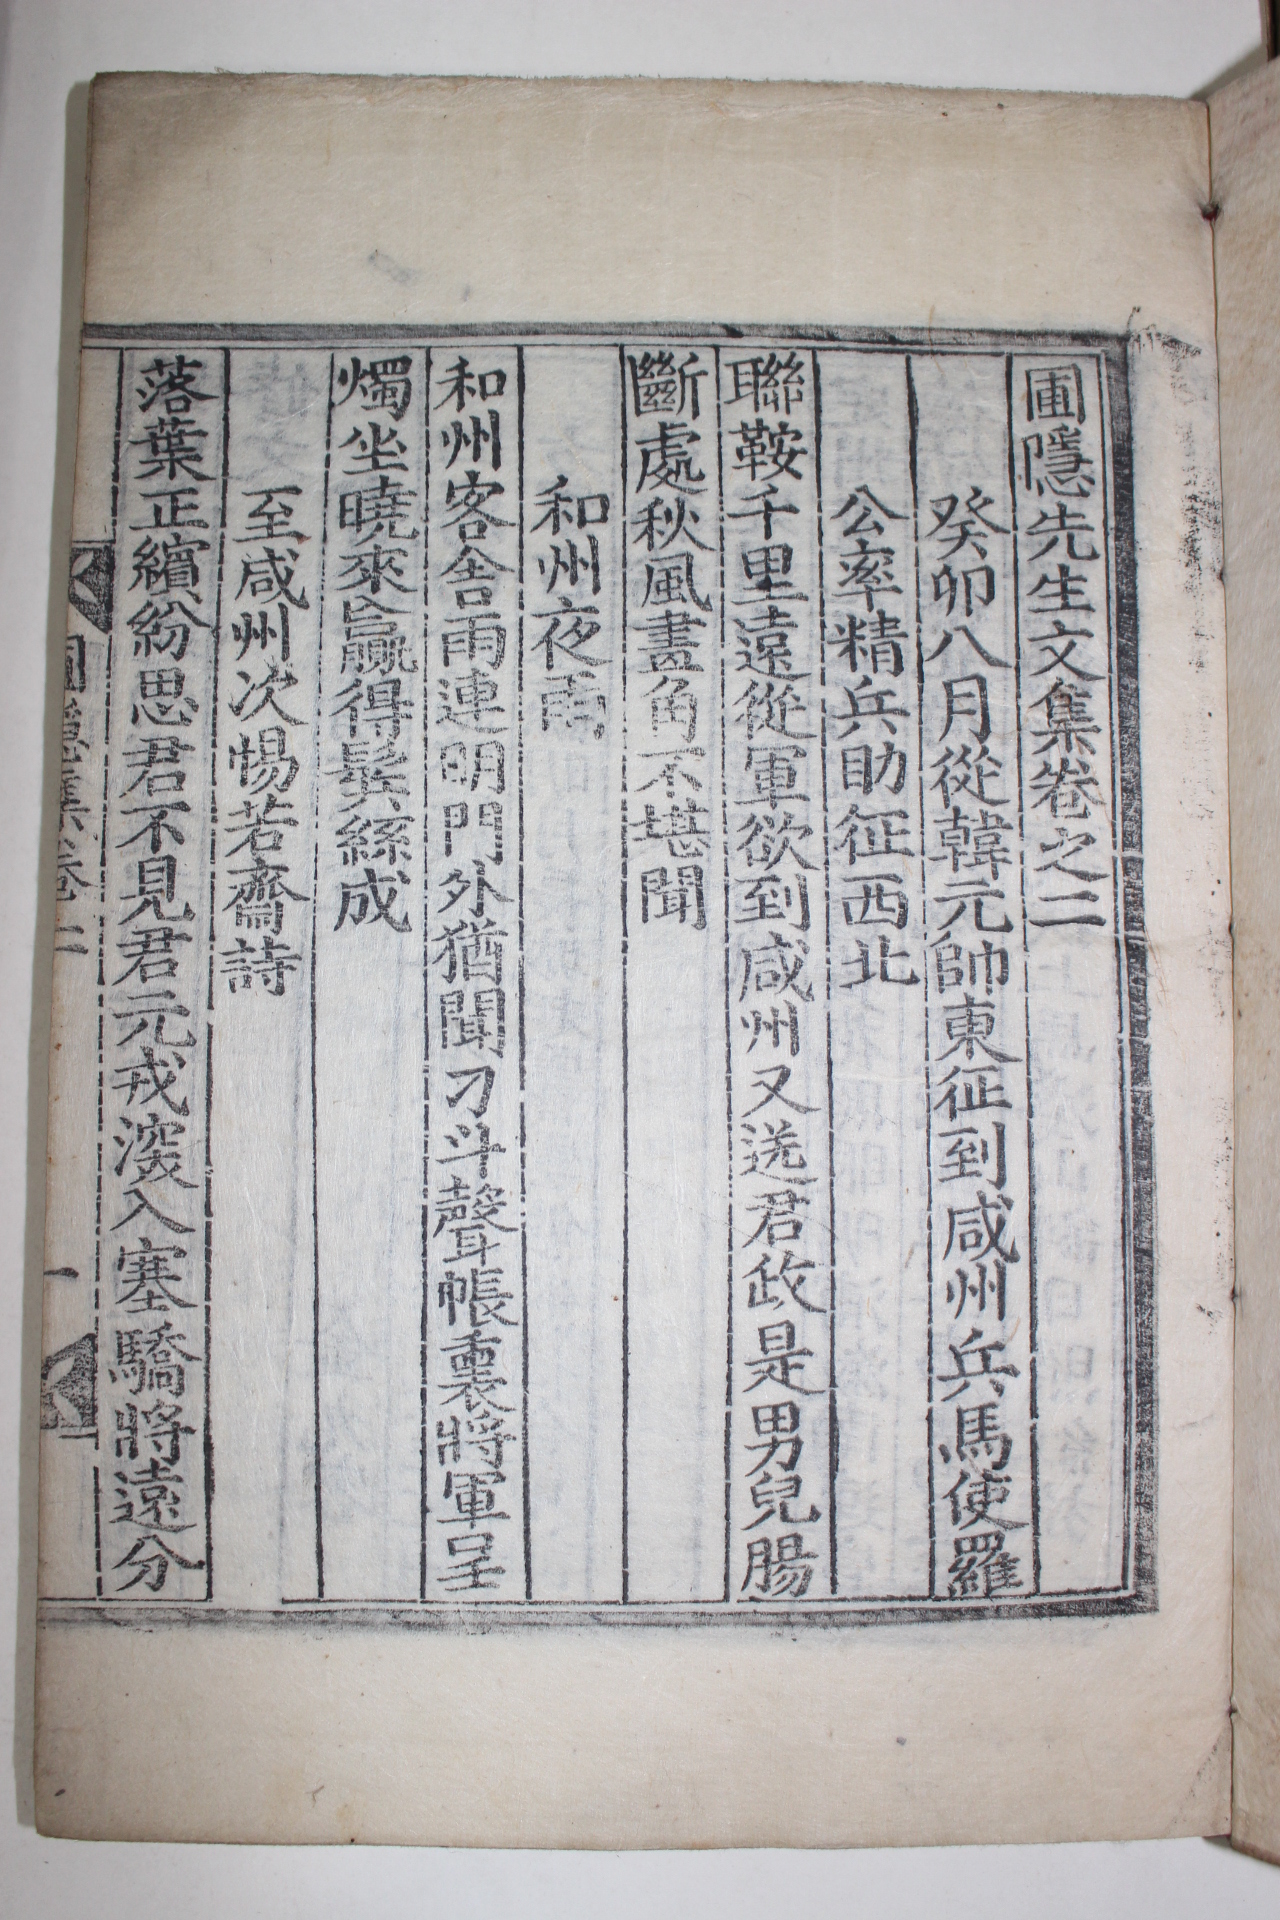 圃隱先生文集卷之二
癸卯八月從韓元帥東征到咸州兵馬使羅
公率精兵助征西北
聯鞍千里遠從軍欲到咸州又送君政是男兒腸
斷處秋風畫角不堪聞
和州夜雨
和州客舍雨連明門外猶聞刁斗聲帳裏將軍呈
燭坐曉來合贏得鬂絲成
至咸州次惕若齋詩
落葉正繽紛思君不見君元戎深入塞驕將遠分
圃隱集卷二
一